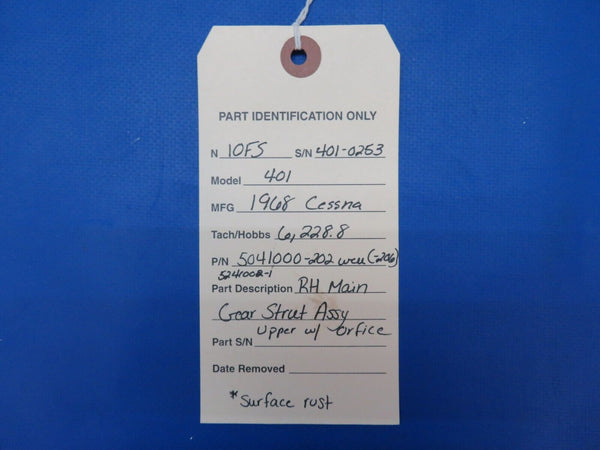 PART IDENTIFICATION ONLY
N 10FS S/N 401-0253
Model 401
MFG 1968 Cessna
Tach/Hobbs 6,228.8
P/N 5041000-202 wcu (-206)
5241002-1
Part Description RH Main
Gear Strut Assy
upper w/ orfice
Part S/N
Date Removed
*Surface rust